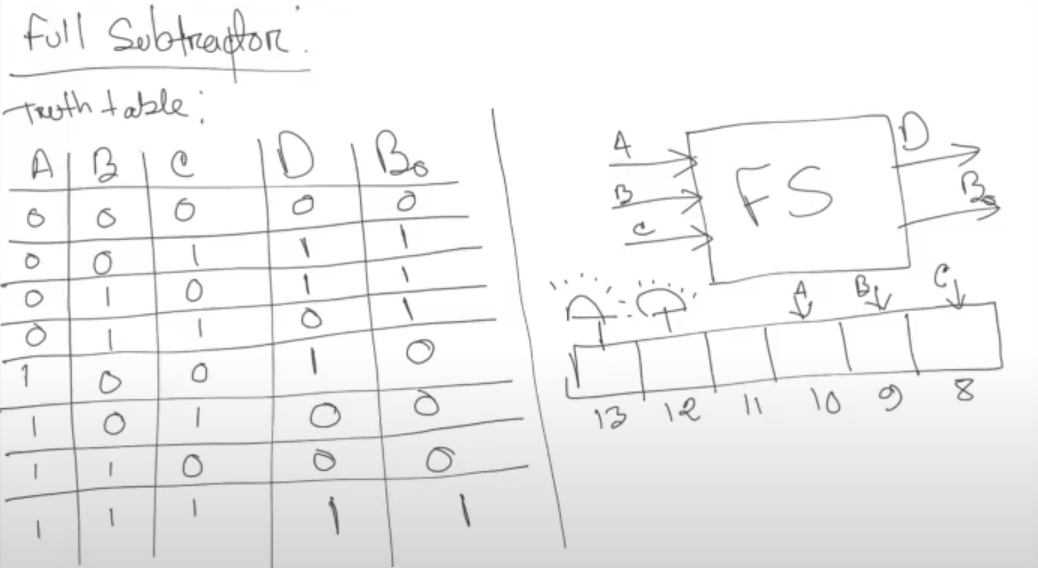 Full Subtractor:
Truth table:
A B C D B₀
0 0 0 0 0
0 0 1 1 1
0 1 0 1 1
0 1 1 0 1
1 0 0 1 0
1 0 1 0 0
1 1 0 0 0
1 1 1 1 1
A
B
C
FS
D
B₀
A B C
13 12 11 10 9 8